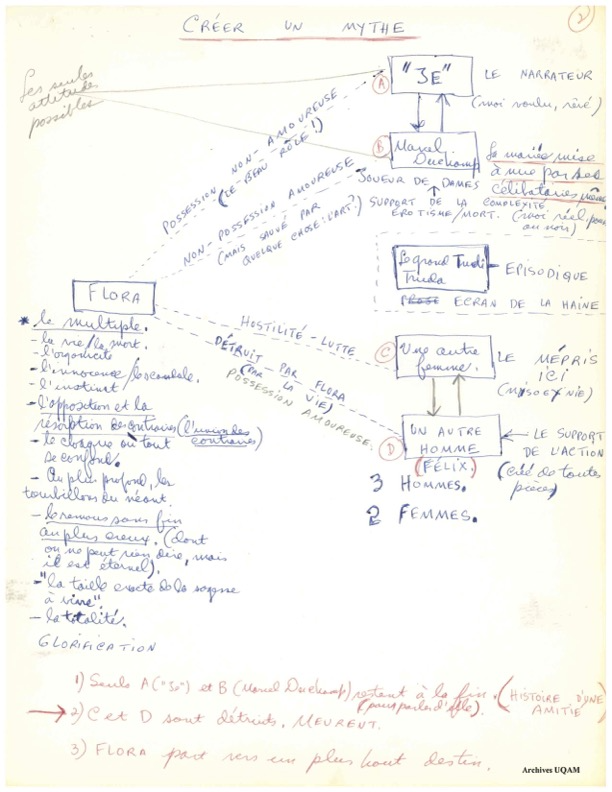 2
CRÉER UN MYTHE
Les seules
attitudes
possibles
A
"JE"
LE NARRATEUR
(moi voulu, rêvé)
POSSESSION NON-AMOUREUSE
(LE BEAU RÔLE!)
B
Marcel
Duchamp
La mariée mise
à nue par ses
célibataires même
JOUEUR DE DAMES
SUPPORT DE LA COMPLEXITÉ
ÉROTISME/MORT. (moi réel,
ou non)
NON-POSSESSION AMOUREUSE
(MAIS SAUVÉ PAR
QUELQUE CHOSE: L'ART?)
Le grand
EPISODIQUE
ECRAN DE LA HAINE
FLORA
HOSTILITÉ - LUTTE
DÉTRUIT PAR FLORA
(PAR LA VIE)
POSSESSION AMOUREUSE.
C
Une autre
femme.
LE MÉPRIS
ICI
(MISOGYNIE)
D
UN AUTRE
HOMME
(FÉLIX.)
LE SUPPORT
DE L'ACTION
(créé de toutes
pièces)
3 HOMMES.
2 FEMMES.
* le multiple.
- la vie/la mort.
- l'organicité
- l'innocence/le scandale.
- l'instinct
- l'opposition et la
résorption de contraires (l'union des
contraires)
- le cloaque où tout
se confond.
- Au plus profond, les
tourbillons du néant.
- le remous sans fin
au plus creux. (dont
on ne peut rien dire, mais
il est éternel).
- "la taille exacte de la
à vivre".
- la totalité.
GLORIFICATION
1) Seuls A ("JE") et B (Marcel Duchamp) restent à la fin. (HISTOIRE D'UNE
AMITIÉ)
(pour parler d'elle).
2) C et D sont détruits. MEURENT.
3) FLORA part vers un plus haut destin.
Archives UQAM